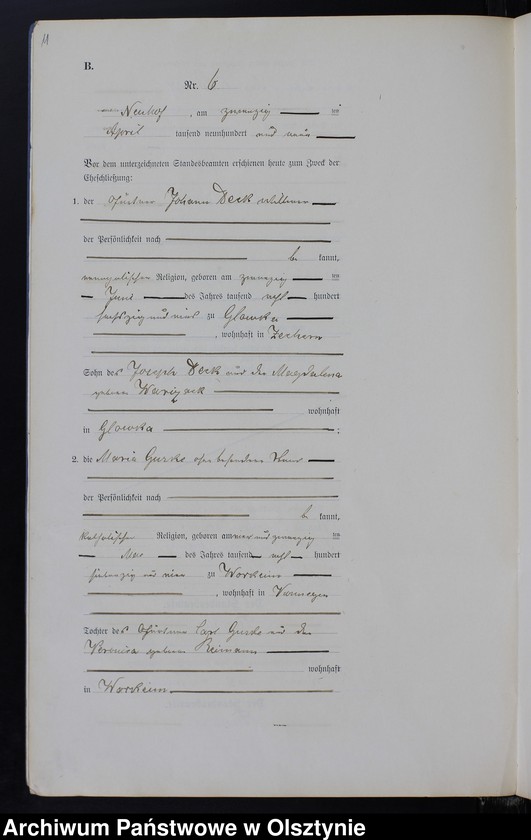 11
B.
Nr. 6
Neuhof, am zwanzig ten
April tausend neunhundert und neun
Vor dem unterzeichneten Standesbeamten erschienen heute zum Zweck der
Eheschließung:
1. der Johann Deck
der Persönlichkeit nach
be kannt,
evangelischer Religion, geboren am zwanzig ten
Juni des Jahres tausend acht hundert
sechszig und zu Glowka
, wohnhaft in Zechern
Sohn des Joseph Deck und der Magdalena
geboren
wohnhaft
in Glowka ;
2. die Maria Gurke ohne besonderen
der Persönlichkeit nach
be kannt,
katholischer Religion, geboren am und zwanzig ten
des Jahres tausend acht hundert
siebenzig und vier zu Workeim
, wohnhaft in
Tochter des Carl Gurke und der
Veronica geboren Reimann
wohnhaft
in Workeim
Archiwum Państwowe w Olsztynie